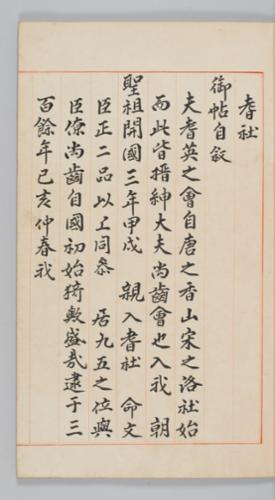 耆社
御帖自敘
夫耆英之會自唐之香山宋之洛社始
而此皆搢紳大夫尚齒會也入我 朝
聖祖開國三年甲戌 親入耆社 命文
臣正二品以上同叅 居九五之位與
臣僚尚齒自國初始猗歟盛哉逮于三
百餘年己亥仲春我